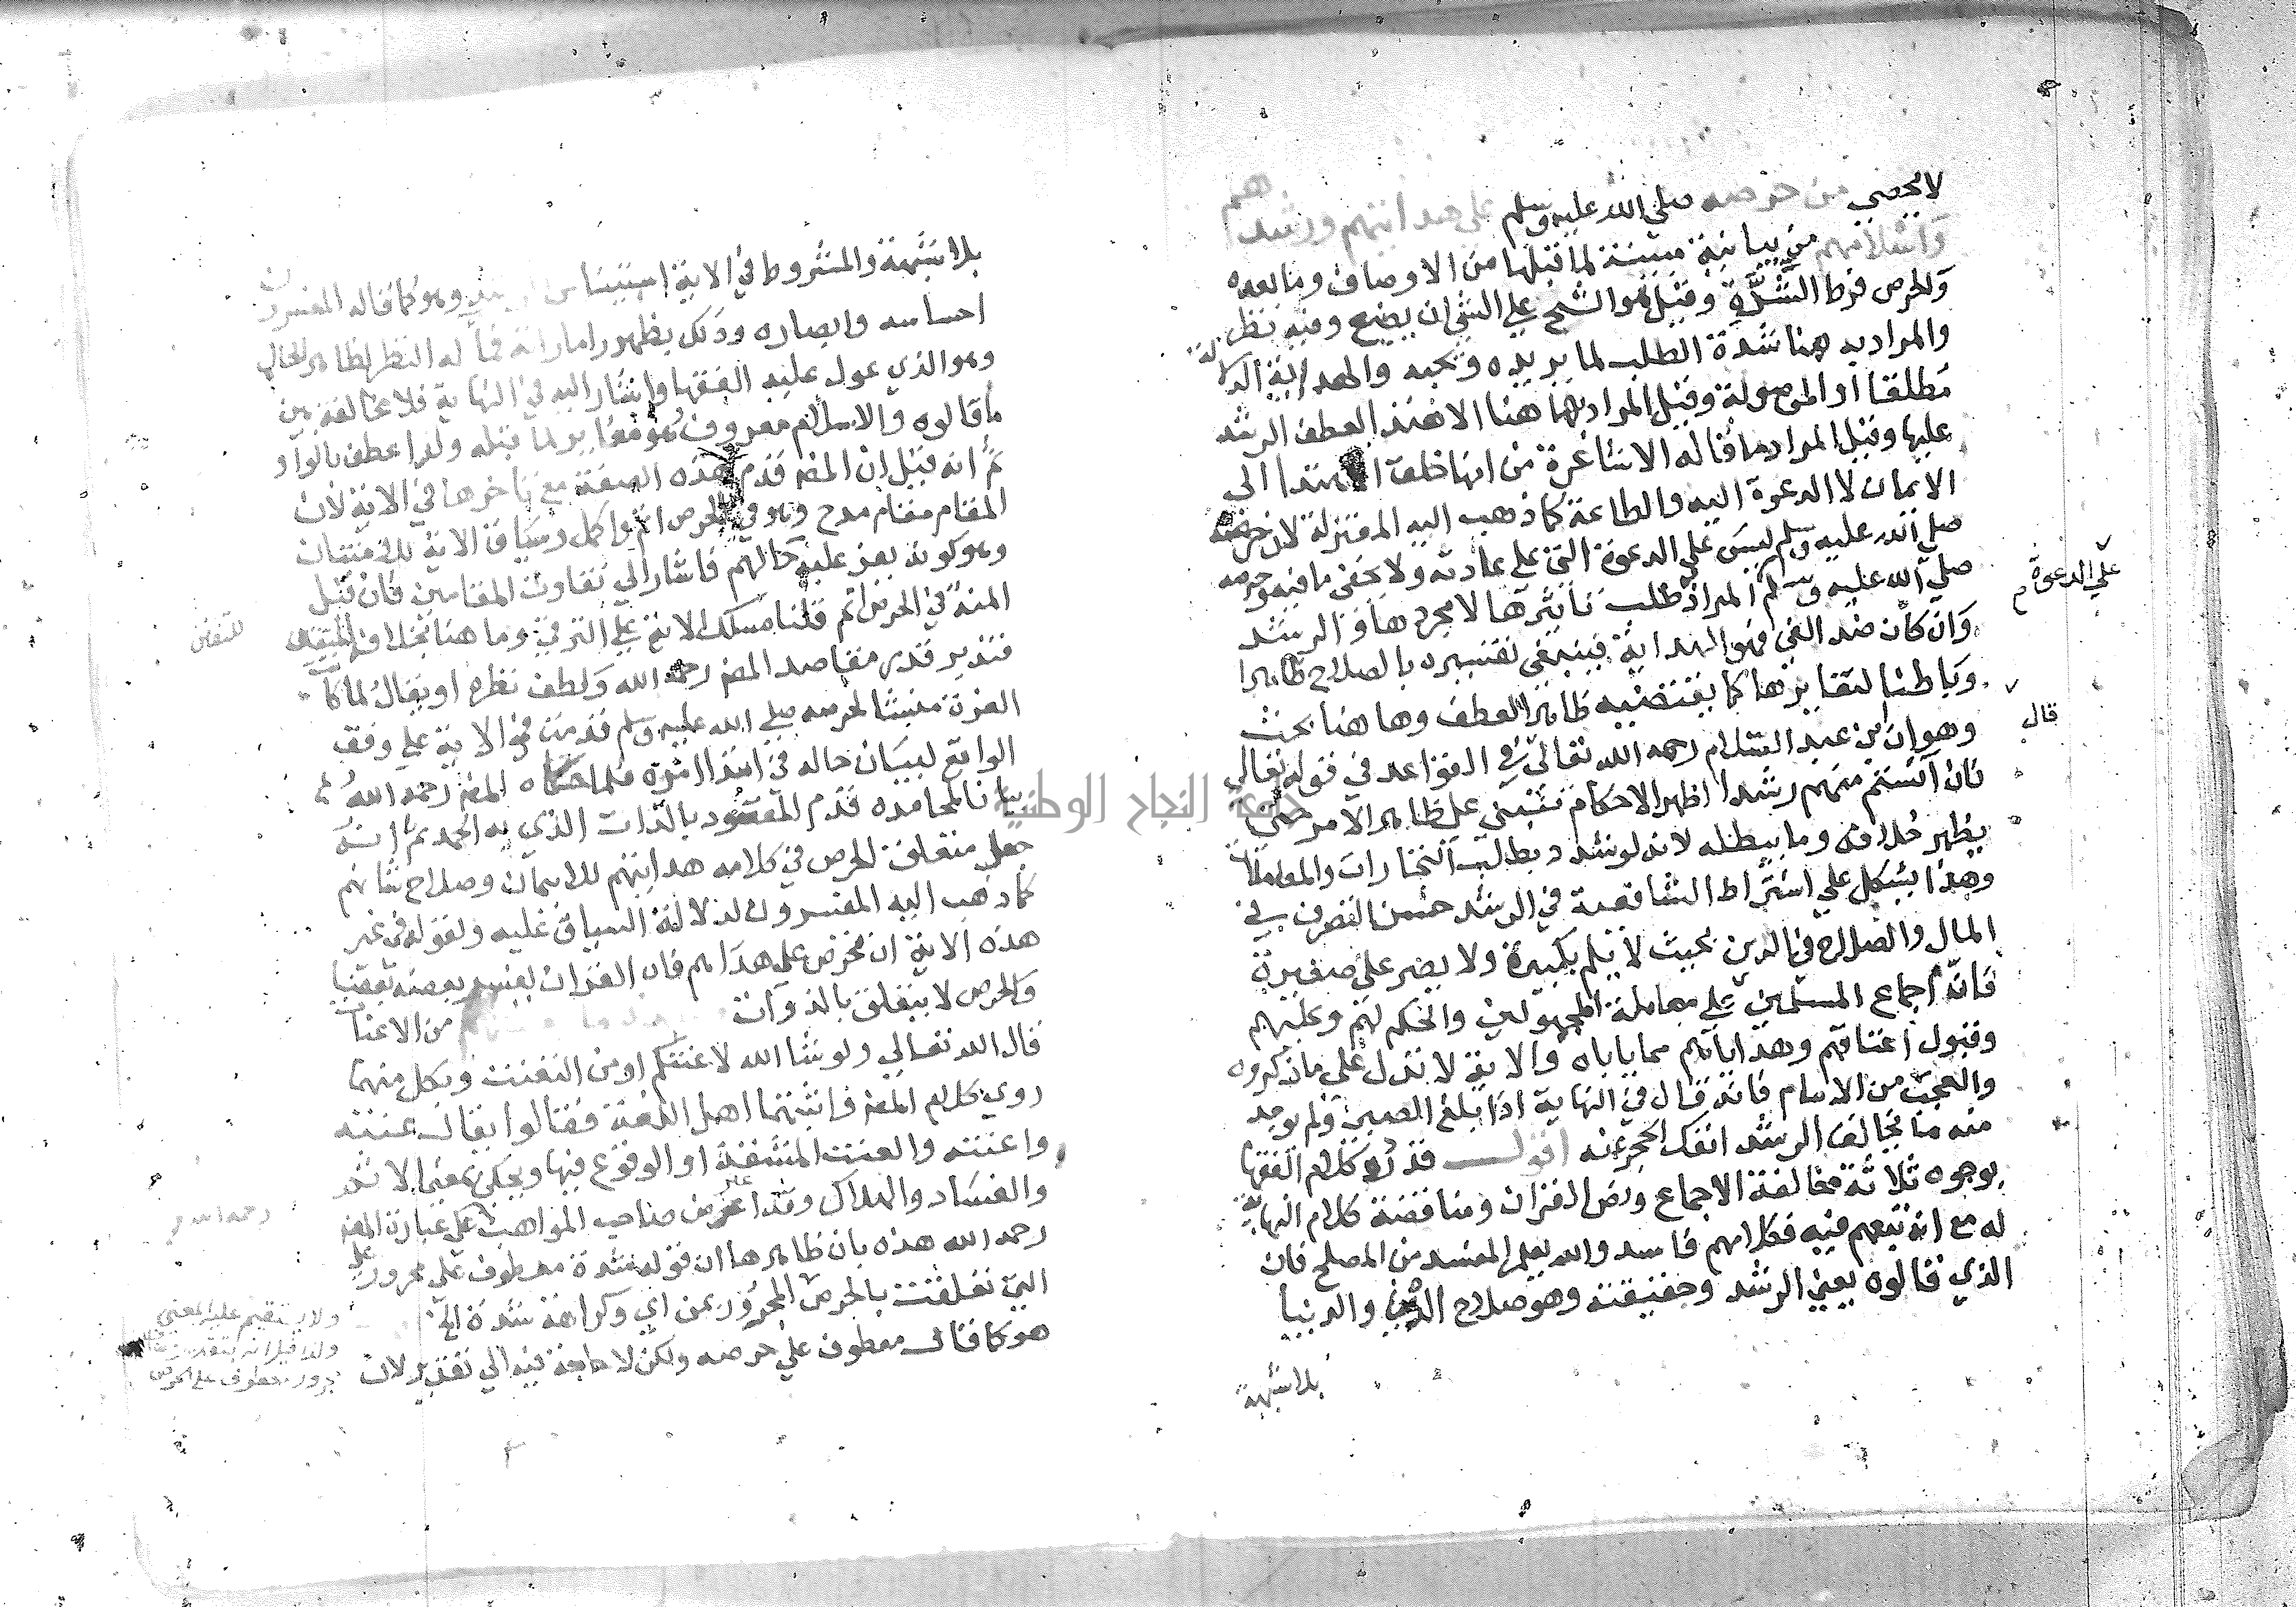 لا يحصى من حرصه صلى الله عليه وسلم على هدايتهم ورشدهم
واسلامهم من بيانية مبينة لما قبلها من الاوصاف وما بعده
والحرص فرط الشره وقيل هو الشح على الشي ان يضيع وفيه نظر
والمراد به هنا شدة الطلب لما يريده ويحبه والهداية الدلالة
مطلقا او الموصولة وقيل المراد بها هنا الاهتدا لعطف الرشد
عليها وقيل المراد ما قاله الاشاعرة من انها خلق الاهتدا الى
الايمان لا الدعوة اليه والطاعة كما ذهب اليه المعتزلة لان حرصه
صلى الله عليه وسلم ليس على الدعوة التي على عادته ولا يخفى ما فيه وحرصه
صلى الله عليه وسلم المراد طلب تاثيرها لا مجردها والرشد
وان كان ضد الغي فهو الهداية فينبغي تفسيره بالصلاح ظاهرا
وباطنا لتغايرها كما يقتضيه ظاهر العطف وها هنا بحث
وهو ان ابن عبد السلام رحمه الله تعالى في القواعد في قوله تعالى
فان آنستم منهم رشدا اظهر الاحكام تبتني على ظاهر الامر حتى
يظهر خلافه وما يبطله لانه لو شدد بطلت التجارات والمعاملات
وهذا يشكل على اشتراط الشافعية في الرشد حسن التصرف في
المال والصلاح في الدين بحيث لا يلم بكبيرة ولا يصر على صغيرة
فان اجماع المسلمين على معاملة المجهولين والحكم لهم وعليهم
وقبول اعتاقهم وهداياهم مما ياباه والاية لا تدل على ما ذكروه
والعجب من الامام فانه قال في النهاية اذا بلغ الصبي ولم يوجد
منه ما يخالف الرشد انفك الحجر عنه اقول قد رد كلام الفقها
بوجوه ثلاثة مخالفة الاجماع ونص القران ومناقضة كلام النهاية
له مع انه تبعهم فيه فكلامهم فاسد والله يعلم المفسد من المصلح فان
الذي قالوه يعني الرشد وحقيقته وهو صلاح الدين والدنيا
بلا شبهة
على الدعوة
قال
بلا شبهة والمشروط في الاية استيناس وهو كما قاله المفسرون
احساسه وابصاره وذلك بظهور اماراته فمآله النظر لظاهر الحال
وهو الذي عول عليه الفقها واشار اليه في النهاية فلا مخالفة بين
ما قالوه والاسلام معروف وهو مغاير لما قبله ولذا عطف بالواو
ثم انه قيل ان المص قدم هذه الصفة مع تاخرها في الاية لان
المقام مقام مدح وهو في الحرص اتم واكمل وسياق الاية للامتنان
وهو كونه يعز عليه حالهم فاشار الى تفاوت المقامين فان قيل
المنة في الحرص اتم قلنا مسلك الاية على الترقي وما هنا بخلافه
فتدبر قدر مقاصد المص رحمه الله ولطف نظره او يقال لما كانت
العزة منشا لحرصه صلى الله عليه وسلم قدمت في الاية على وفق
الواقع لبيان حاله فلما حكاه المص رحمه الله
بيانا لمحامده قدم المقصود بالذات الذي به الحمد ثم انه
جعل متعلق الحرص في كلامه هدايتهم للايمان وصلاح شانهم
كما ذهب اليه المفسرون لدلالة السياق عليه ولقوله في غير
هذه الاية ان تحرص على هداهم فان القران يفسر بعضه بعضا
والحرص لا يتعلق بالذوات من الاعنات
قال الله تعالى ولو شا الله لاعنتكم او من التعنت وبكل منهما
روي كلام المص واثبتهما اهل اللغة فقالوا يقال عنته
واعنته والعنت المشقة او الوقوع فيها ويحكي بمعنى الاثم
والفساد والهلاك وقد اعترض صاحب المواهب على عبارة المص
رحمه الله هذه بان ظاهرها ان قوله شدة معطوف على مجرور على
التي تعلقت بالحرص المجرور بمن اي وكراهة شدة الخ
هو كما قال معطوف على حرصه ولكن لا حاجة فيه الى تقدير لان
رحمه الله
ولا يستقيم عليه المعنى
ولذا قيل انه بتقدير
مجرور معطوف على الحرص
جامعة النجاح الوطنية